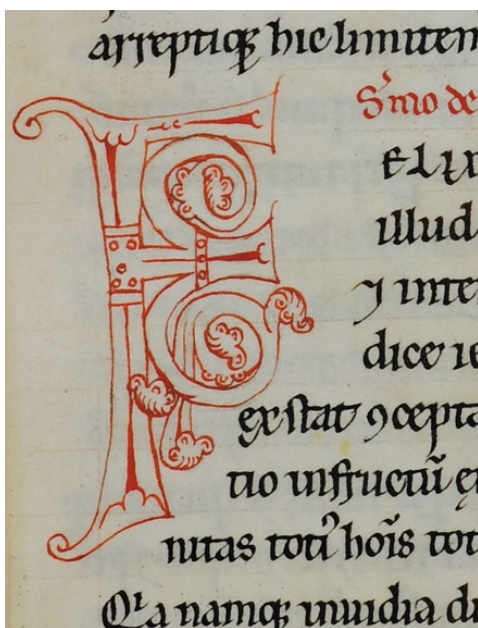 arreptiqꝫ hic limitem
S̃mo de
FELIX
illud
⁊ inte
dice ie
exstat ꝯcepta
tio infructũ e
nitas totꝰ hoĩs tot
Qͥa namqꝫ inuidia di